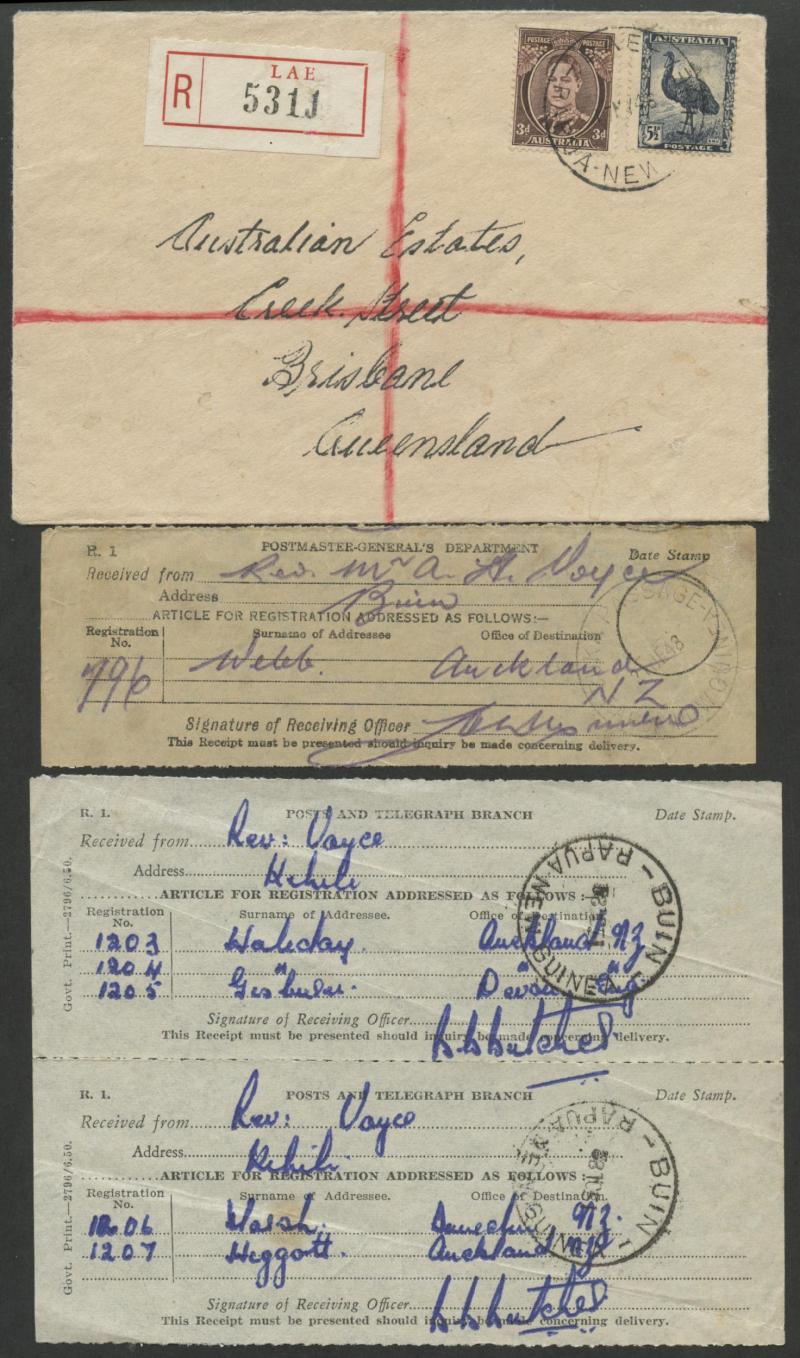 R LAE
531J
POSTAGE POSTAGE
3d 3d
AUSTRALIA
AUSTRALIA
5½
POSTAGE
A-NEW
Australian Estates,
Creek Street
Brisbane
Queensland
R. 1 POSTMASTER-GENERAL'S DEPARTMENT Date Stamp
Received from Rev. Mr A. H. Voyce
Address Buin
ARTICLE FOR REGISTRATION ADDRESSED AS FOLLOWS:—
Registration No. Surname of Addressee Office of Destination
796 Webb. Auckland
NZ
Signature of Receiving Officer
This Receipt must be presented should inquiry be made concerning delivery.
R. 1. POSTS AND TELEGRAPH BRANCH Date Stamp.
Received from Rev: Voyce
Address Kihili
ARTICLE FOR REGISTRATION ADDRESSED AS FOLLOWS :—
Registration No. Surname of Addressee. Office of Destination.
1203 Auckland NZ
1204 " "
1205 Devon Eng.
Signature of Receiving Officer
This Receipt must be presented should inquiry be made concerning delivery.
Govt. Print.—2796/6.50.
BUIN – PAPUA-NEW GUINEA
R. 1. POSTS AND TELEGRAPH BRANCH Date Stamp.
Received from Rev: Voyce
Address Kihili
ARTICLE FOR REGISTRATION ADDRESSED AS FOLLOWS :
Registration No. Surname of Addressee. Office of Destination.
1206 Walsh. NZ.
1207 Heggott. Auckland NZ
Signature of Receiving Officer
This Receipt must be presented should inquiry be made concerning delivery.
Govt. Print.—2796/6.50.
BUIN – PAPUA